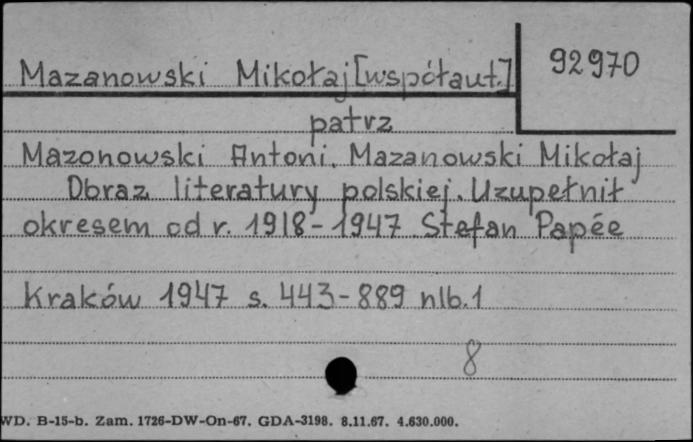 92970
Mazanowski Mikołaj [współaut.]
patrz
Mazonowski Antoni. Mazanowski Mikołaj
Obraz literatury polskiej. Uzupełnił
okresem od r. 1918-1947 Stefan Papée
Kraków 1947 s. 443-889 nlb. 1
8
WD. B-15-b. Zam. 1726-DW-On-67. GDA-3198. 8.11.67. 4.630.000.